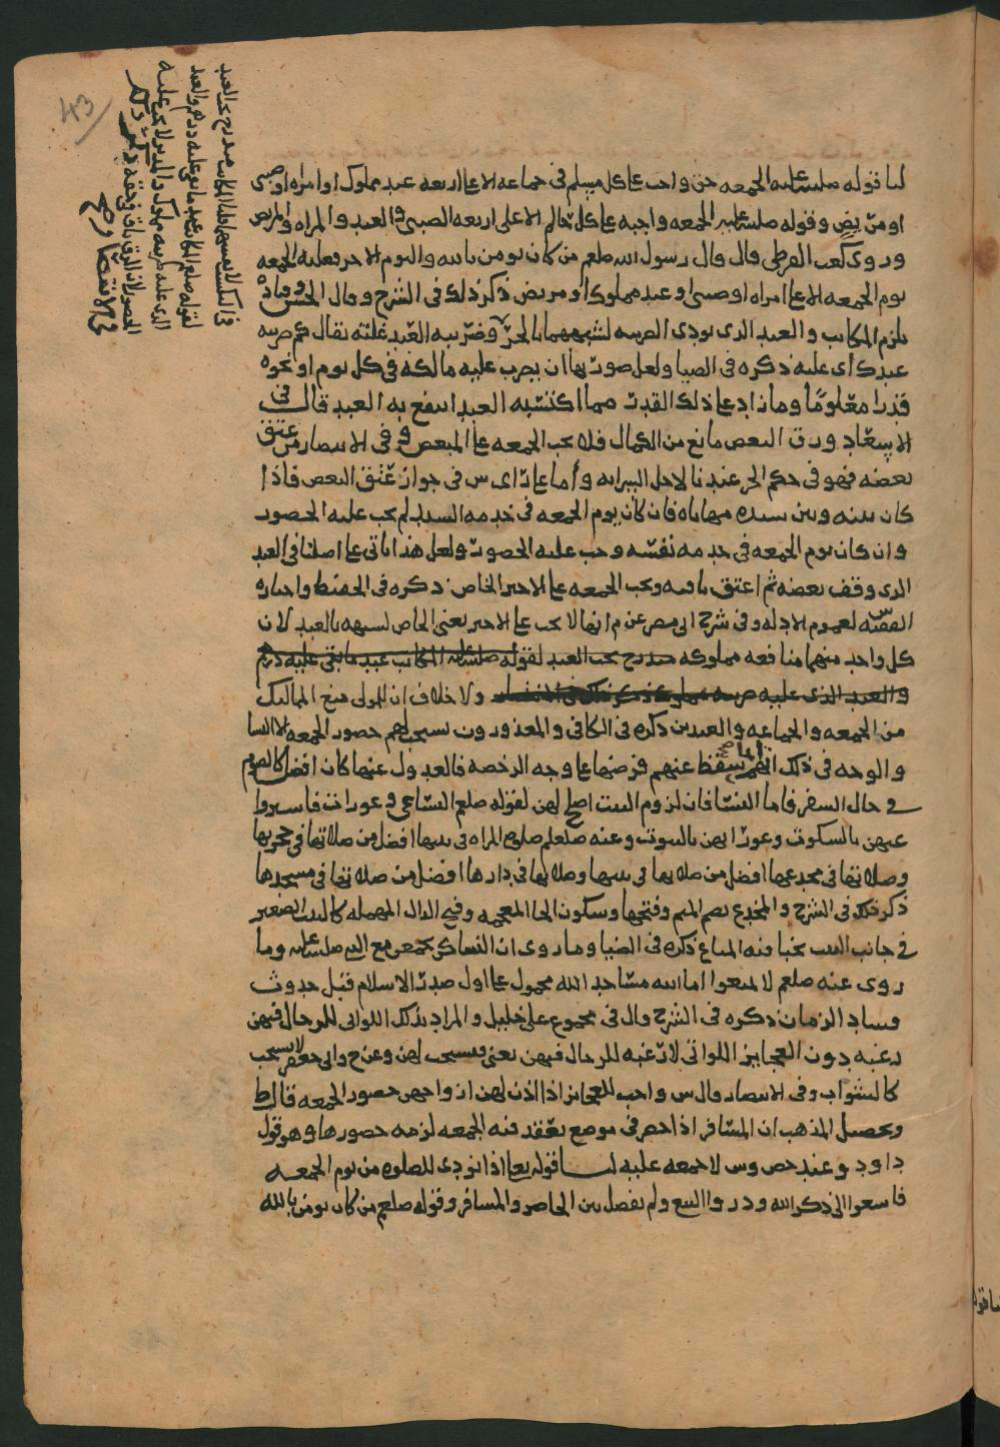 لنا قوله صلى الله عليه الجمعه حق واجب على كل مسلم فى جماعه الا على اربعه عبد مملوك او امراه او صبى
او مريض وقوله صلى الله عليه الجمعه واجبه على كل حالم الا على اربعه الصبى والعبد والمراه والمريض
وروى كعب القرظى قال قال رسول الله صلعم من كان يومن بالله واليوم الاخر فعليه الجمعه
يوم الجمعه الا على امراه او صبى او عبد مملوك او مريض ذكر ذلك فى الشرح وقال الحسن وقتاده
يلزم المكاتب والعبد الذى يودى الضريبه لشبههما بالحر وضريبه العبد غلته يقال كم ضريبه
عبدك اى غلته ذكره فى الضيا ولعل صورتها ان يضرب عليه مالكه فى كل يوم او نحوه
قدرا معلوما وما زاد على ذلك القدر مما اكتسبه العبد انتفع به العبد قال فى
الانتصار ورق البعض مانع من الكمال فلا تجب الجمعه على المبعض وفى الانتصار من عتق
بعضه فهو فى حكم الحر عندنا لاجل السرايه واما على راى س فى جواز عتق البعض فاذا
كان بينه وبين سيده مهاياه فان كان يوم الجمعه فى خدمه السيد لم يجب عليه الحضور
وان كان يوم الجمعه فى خدمه نفسه وجب عليه الحضور ولعل هذا ياتى على اصلنا فى العبد
الذى وقف بعضه ثم اعتق باقيه وتجب الجمعه على الاجير الخاص ذكره فى الحفيظ واختاره
الفقيه س لعموم الادله وفى شرح ابى مضر عن م انها لا تجب على الاجير يعنى الخاص لشبهه بالعبد لان
كل واحد منهما منافعه مملوكه صدرح تحب العبد لقوله صلى الله عليه المكاتب عبد ما بقى عليه درهم
والعبد الذى عليه ضريبه مملوك ذكر ذلك فى الانتصار ولا خلاف ان للمولى منع المماليك
من الجمعه والجماعه والعيدين ذكره فى الكافى والمعذورون يستحب لهم حضور الجمعه الا النسا
والوجه فى ذلك انه انما سقط عنهم فرضها على وجه الرخصه فالعدول عنها كان افضل كالصوم
فى حال السفر فاما النسا فان لزوم البيت اصلح لهن لقوله صلعم النسا عى وعورات فاستروا
عيهن بالسكوت وعوراتهن بالبيوت وعنه صلعم صلاه المراه فى بيتها افضل من صلاتها فى حجرتها
وصلاتها فى مخدعها افضل من صلاتها فى بيتها وصلاتها فى دارها افضل من صلاتها فى مسجدها
ذكر ذلك فى الشرح والمخدع بضم الميم وفتحها وسكون الخا المعجمه وفتح الدال المهمله كالبيت الصغير
فى جانب البيت يخبا فيه المتاع ذكره فى الضيا وما روى ان النسا كن يجتمعن مع النبى صلى الله عليه وما
روى عنه صلعم لا تمنعوا اما الله مساجد الله محمول على اول صدر الاسلام قبل حدوث
فساد الزمان ذكره فى الشرح وقال فى مجموع على خليل والمراد بذلك اللواتى للرجال فيهن
رغبه دون العجايز اللواتى لا رغبه للرجال فيهن يعنى فيستحب لهن وعن ح وابى جعفر لا يستحب
كالشواب وفى الانتصار وقال س واحب للعجايز اذا اذن لهن ازواجهن حضور الجمعه قال ط
وتحصيل المذهب ان المسافر اذا حضر فى موضع تعقد فيه الجمعه لزمه حضورها وهو قول
داود وعند ح ص وس لا جمعه عليه لنا قوله تعالى اذا نودى للصلوه من يوم الجمعه
فاسعوا الى ذكر الله وذروا البيع ولم يفصل بين الحاضر والمسافر وقوله صلعم من كان يومن بالله
43
لقوله صلعم المكاتب عبد ما بقى عليه درهم والعبد
الذى عليه ضريبه مملوك والمدبر لا تجب عليه